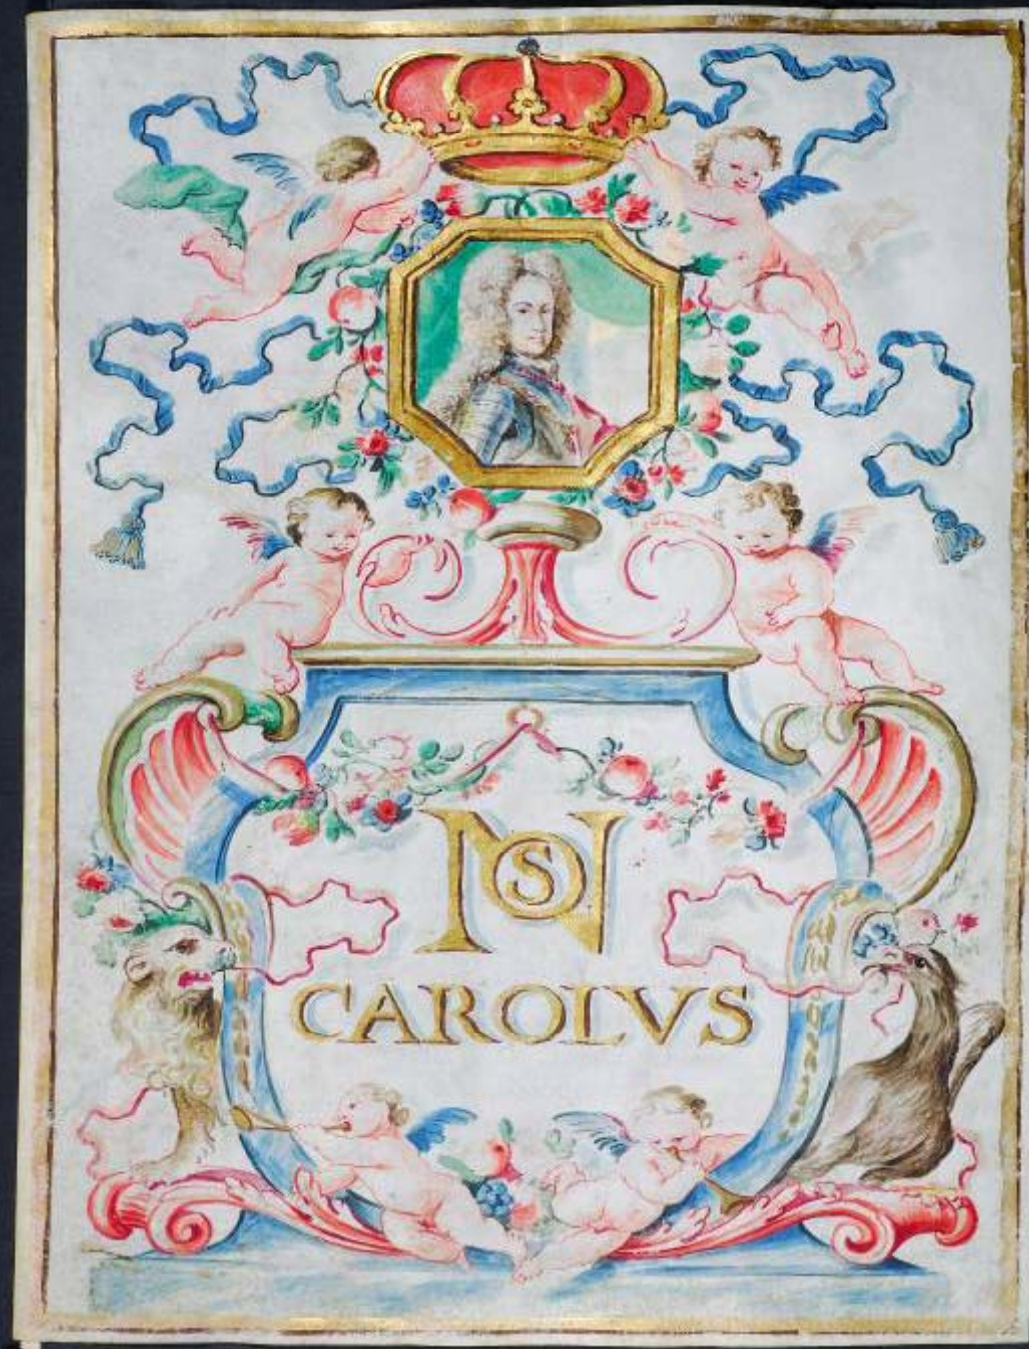 NOS
CAROLVS